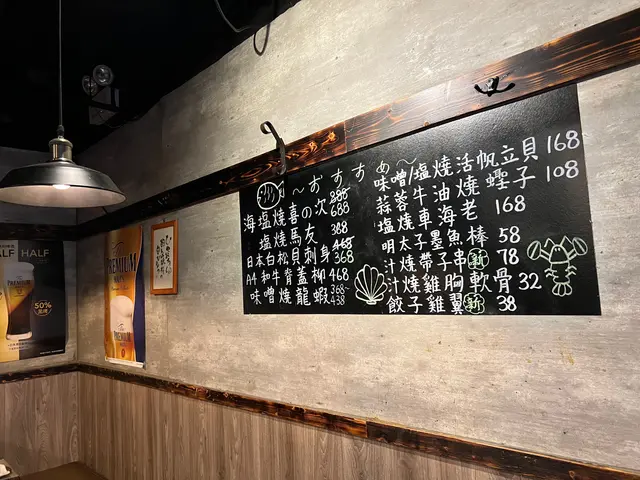 HALF HALF
PREMIUM
50%
PREMIUM
PREMIUM
～おすすめ～
海塩燒喜の次 888 688
塩燒馬友 388
日本白松貝刺身 468 368
A4和牛脊蓋柳 468
味噌燒龍蝦 368~438
味噌/塩燒活帆立貝 168
蒜蓉牛油燒蟶子 108
塩燒車海老 168
明太子墨魚棒 58
汁燒帶子串 新 78
汁燒雞胸軟骨 32
餃子雞翼 新 38